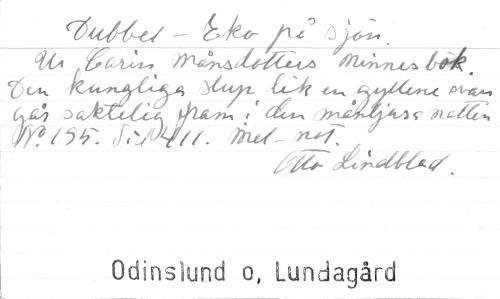 Dubbel - Eko på sjön.
Ur Carin Månsdotters Minnesbok.
Den kungliga slup lik en gyllene svan
går saktelig fram i den månljusa natten
No. 195. Sid 411. Mel- not.
Otto Lindblad.
Odinslund o, Lundagård